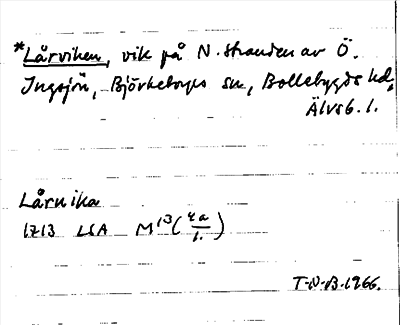 *Lårviken, vik på N. stranden av Ö.
Ingsjön, Björketorps sn, Bollebygds hd,
Älvsb. l.
Lårvika
1713 LSA M13 (42/1.)
T-N-B. 1966.